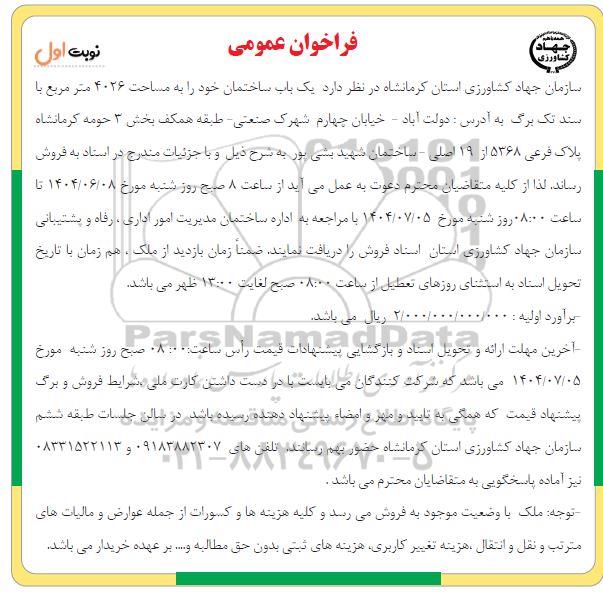 فراخوان عمومی
نوبت اول
همه با هم
جهاد
کشاورزی
سازمان جهاد کشاورزی استان کرمانشاه در نظر دارد یک باب ساختمان خود را به مساحت ۴۰۲۶ متر مربع با
سند تک برگ به آدرس : دولت آباد - خیابان چهارم شهرک صنعتی- طبقه همکف بخش ۳ حومه کرمانشاه
پلاک فرعی ۵۳۶۸ از ۱۹ اصلی - ساختمان شهید بشی پور به شرح ذیل و با جزئیات مندرج در اسناد به فروش
رساند. لذا از کلیه متقاضیان محترم دعوت به عمل می آید از ساعت ۸ صبح روز شنبه مورخ ۱۴۰۴/۰۶/۰۸ تا
ساعت ۰۸:۰۰روز شنبه مورخ ۱۴۰۴/۰۷/۰۵ با مراجعه به اداره ساختمان مدیریت امور اداری ، رفاه و پشتیبانی
سازمان جهاد کشاورزی استان اسناد فروش را دریافت نمایند. ضمناً زمان بازدید از ملک ، هم زمان با تاریخ
تحویل اسناد به استثنای روزهای تعطیل از ساعت ۰۸:۰۰ صبح لغایت ۱۳:۰۰ ظهر می باشد.
-برآورد اولیه : ۲/۰۰۰/۰۰۰/۰۰۰/۰۰۰ ریال می باشد.
-آخرین مهلت ارائه و تحویل اسناد و بازگشایی پیشنهادات قیمت رأس ساعت:۰۸:۰۰ صبح روز شنبه مورخ
۱۴۰۴/۰۷/۰۵ می باشد که شرکت کنندگان می بایست با در دست داشتن کارت ملی ،شرایط فروش و برگ
پیشنهاد قیمت که همگی به تایید و مهر و امضاء پیشنهاد دهنده رسیده باشد در سالن جلسات طبقه ششم
سازمان جهاد کشاورزی استان کرمانشاه حضور بهم رسانند. تلفن های ۰۹۱۸۳۸۸۲۳۰۷ و ۰۸۳۳۱۵۲۲۱۱۳
نیز آماده پاسخگویی به متقاضایان محترم می باشد .
-توجه: ملک با وضعیت موجود به فروش می رسد و کلیه هزینه ها و کسورات از جمله عوارض و مالیات های
مترتب و نقل و انتقال ،هزینه تغییر کاربری، هزینه های ثبتی بدون حق مطالبه و.... بر عهده خریدار می باشد.
ParsNamadData
۰۲۱-۸۸۳۴۹۶۷۰-۵